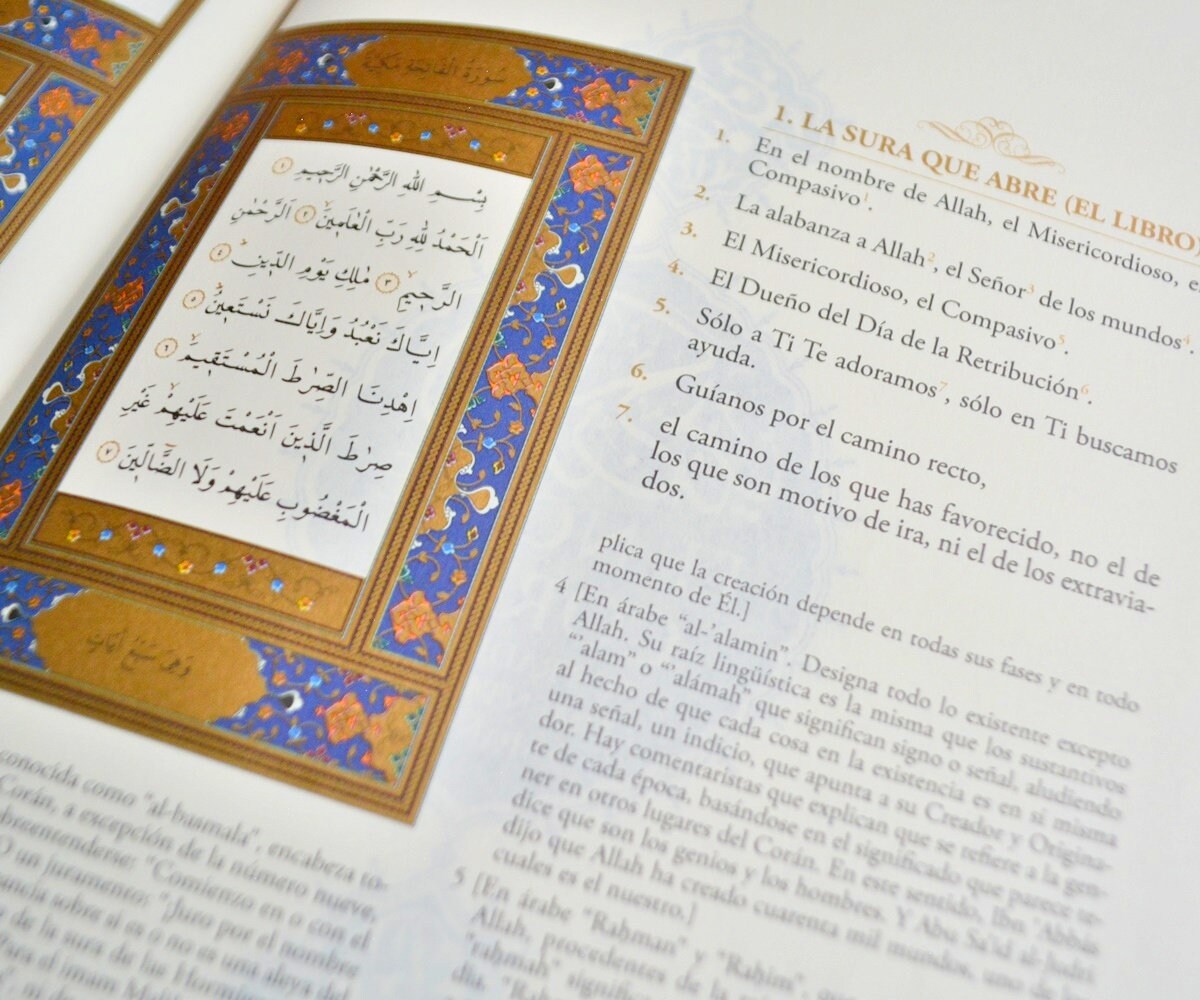 سُورَةُ الْفَاتِحَةِ مَكِّيَّةٌ
بِسْمِ اللهِ الرَّحْمٰنِ الرَّحِيمِ ١
اَلْحَمْدُ لِلهِ رَبِّ الْعَالَمِينَ ٢ اَلرَّحْمٰنِ
الرَّحِيمِ ٣ مٰلِكِ يَوْمِ الدِّينِ ٤
اِيَّاكَ نَعْبُدُ وَاِيَّاكَ نَسْتَعِينُ ٥
اِهْدِنَا الصِّرَاطَ الْمُسْتَقِيمَ ٦
صِرَاطَ الَّذِينَ اَنْعَمْتَ عَلَيْهِمْ غَيْرِ
الْمَغْضُوبِ عَلَيْهِمْ وَلَا الضَّالِّينَ ٧
وَهِيَ سَبْعُ اٰيَاتٍ
conocida como "al-basmala", encabeza to-
Corán, a excepción de la número nueve,
"Comienzo en o con el
O un juramento: "Juro por el nombre
sobre si es o no es una aleya del
de la sura de las
el imam
1. LA SURA QUE ABRE (EL LIBRO)
1. En el nombre de Allah, el Misericordioso, el
Compasivo1.
2. La alabanza a Allah2, el Señor3 de los mundos4.
3. El Misericordioso, el Compasivo5.
4. El Dueño del Día de la Retribución6.
5. Sólo a Ti Te adoramos7, sólo en Ti buscamos
ayuda.
6. Guíanos por el camino recto,
7. el camino de los que has favorecido, no el de
los que son motivo de ira, ni el de los extravia-
dos.
plica que la creación depende en todas sus fases y en todo
momento de Él.]
4 [En árabe "al-'alamin". Designa todo lo existente excepto
Allah. Su raíz lingüística es la misma que los sustantivos
"'alam" o "'alámah" que significan signo o señal, aludiendo
al hecho de que cada cosa en la existencia es en sí misma
una señal, un indicio, que apunta a su Creador y Origina-
dor. Hay comentaristas que explican que se refiere a la gen-
te de cada época, basándose en el significado que parece te-
ner en otros lugares del Corán. En este sentido, Ibn 'Abbás
dice que son los genios y los hombres. Y Abu Sa'id al-Judri
dijo que Allah ha creado cuarenta mil mundos, uno de los
cuales es el nuestro.]
5 [En árabe "Rahman" y "Rahim",
Allah, procedentes de la
"rahmah"